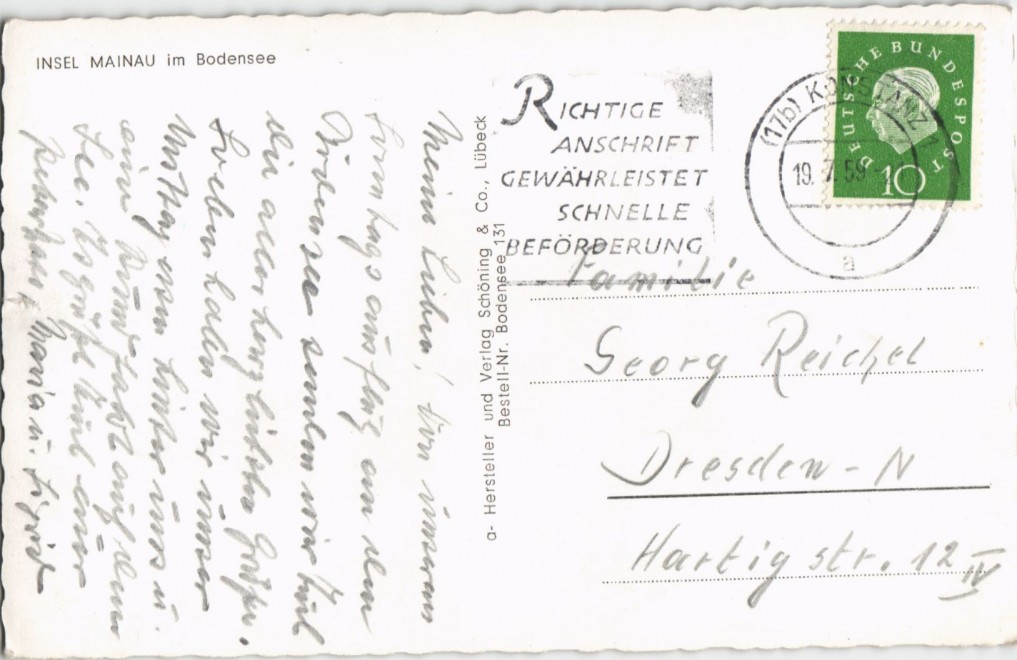 INSEL MAINAU im Bodensee
Meine Lieben! Von unserem
Sonntagsausflug an den
Bodensee senden wir Euch
die allerherzlichsten Grüße.
Soeben haben wir unser
Mittagessen hinter uns u.
eine Rundfahrt auf dem
See. Es grüßt Euch Euer
Maria u. Sigrid
a- Hersteller und Verlag Schöning & Co., Lübeck
Bestell-Nr. Bodensee 131
RICHTIGE
ANSCHRIFT
GEWÄHRLEISTET
SCHNELLE
BEFÖRDERUNG
(17b) KONSTANZ 1
19. 7. 59
a
DEUTSCHE BUNDESPOST
10
Familie
Georg Reichel
Dresden - N
Hartigstr. 12 IV